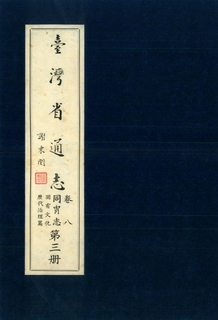 臺灣省通志
謝東閔
卷八
同胄志
固有文化
歷代治理篇
第三册